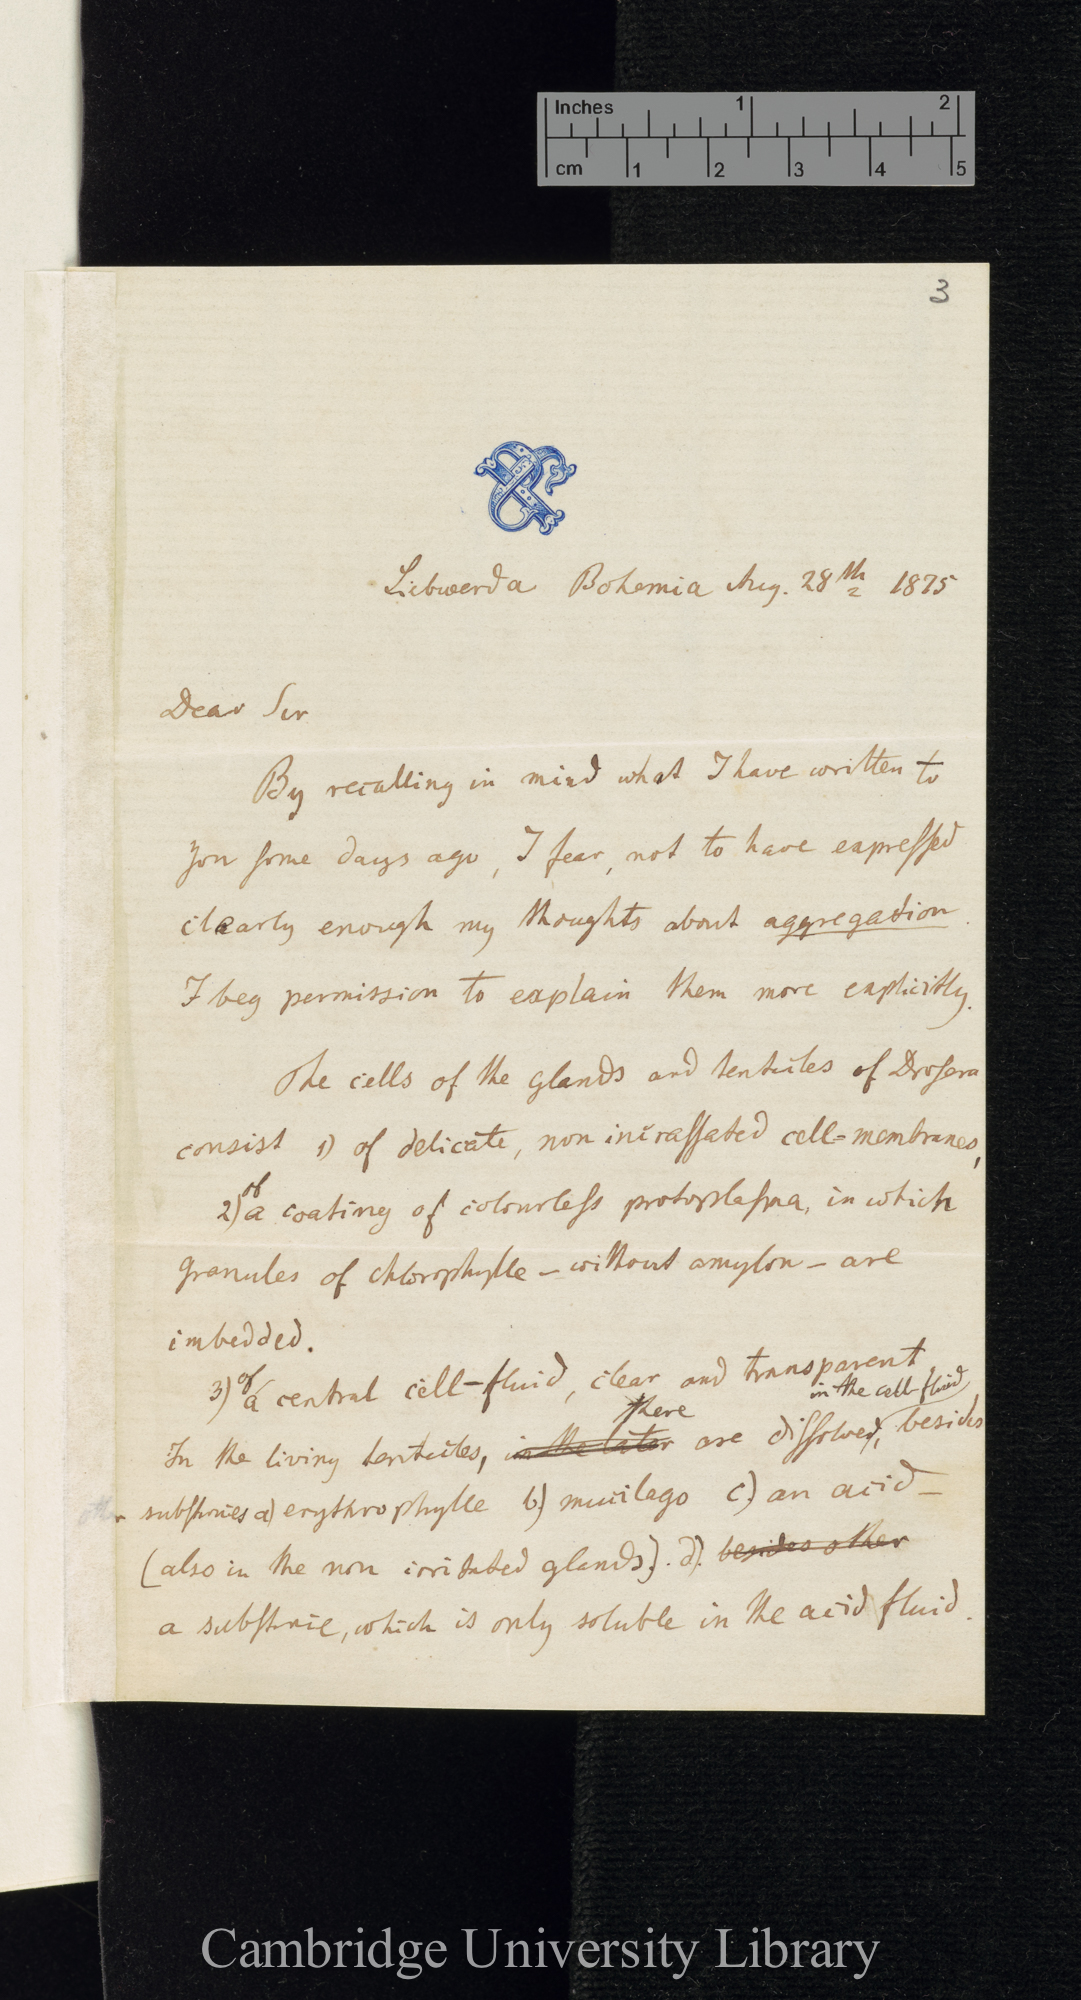 Inches 1 2
cm 1 2 3 4 5
3
Liebwerda Bohemia Aug. 28th 1875
Dear Sir
By recalling in mind what I have written to
you some days ago, I fear, not to have expressed
clearly enough my thoughts about aggregation.
I beg permission to explain them more explicitly.
The cells of the glands and tentacles of Drosera
consist 1) of delicate, non incrassated cell-membranes,
2) of a coating of colourless protoplasma, in which
granules of chlorophylle – without amylon – are
imbedded.
3) of a central cell-fluid, clear and transparent
in the cell-fluid,
there
In the living tentacles, in the later are dissolved, besides
other substances a) erythrophylle b) mucilago c) an acid –
(also in the non irritated glands). d). besides other
a substance, which is only soluble in the acid fluid.
Cambridge University Library